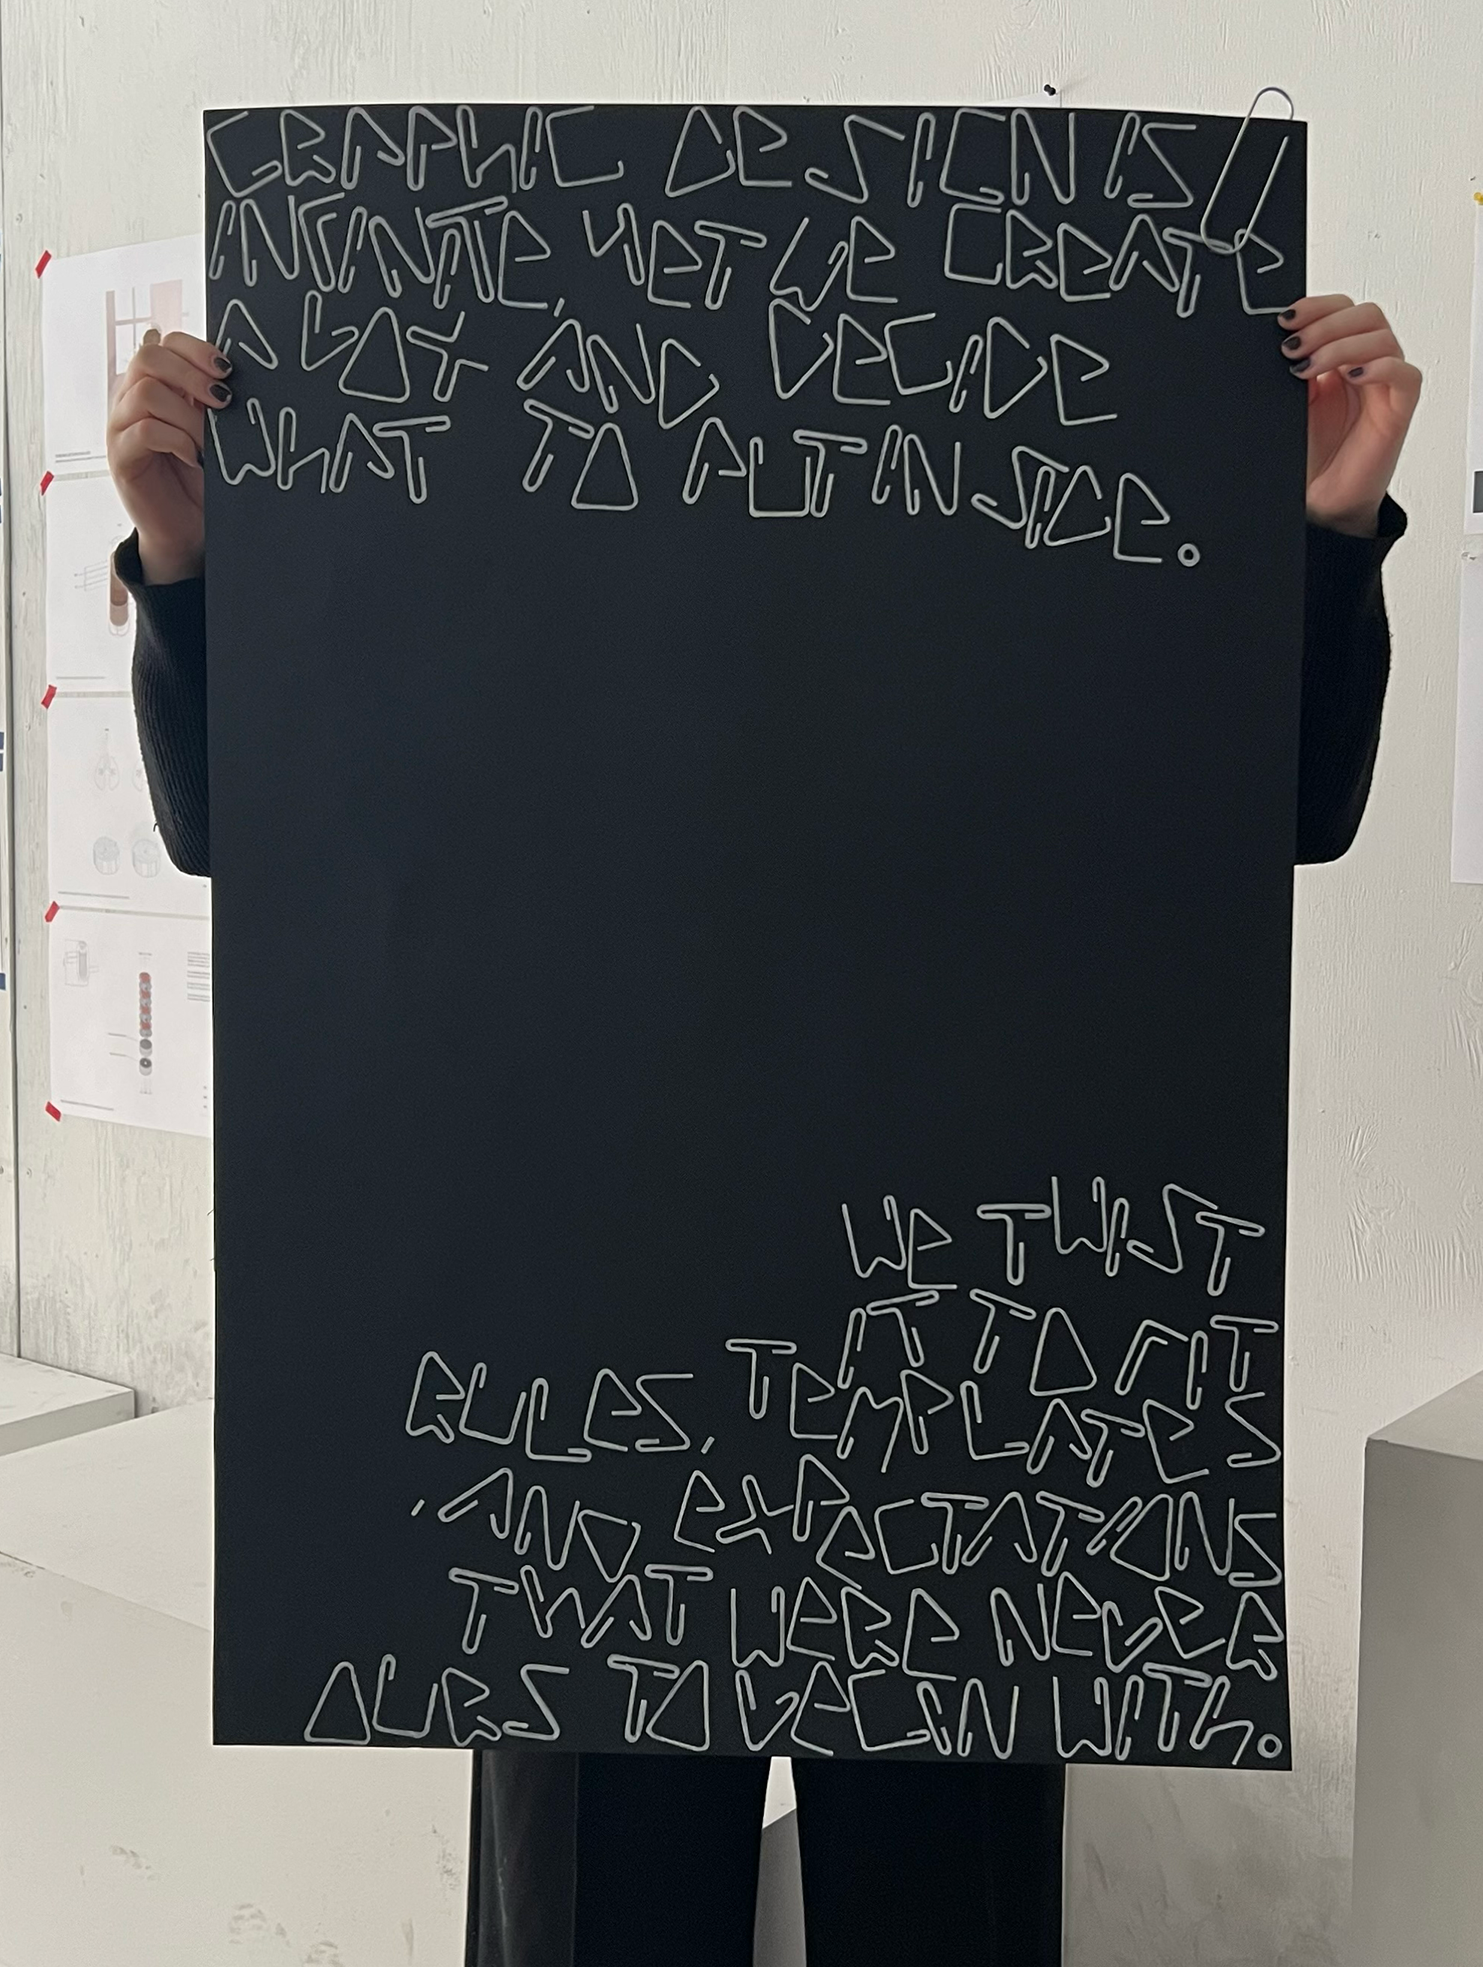 GRAPHIC DESIGN IS
INFINITE, YET WE CREATE
A BOX AND DECIDE
WHAT TO PUT INSIDE.
WE TWIST
IT TO FIT
RULES, TEMPLATES
, AND EXPECTATIONS
THAT WERE NEVER
OURS TO BEGIN WITH.